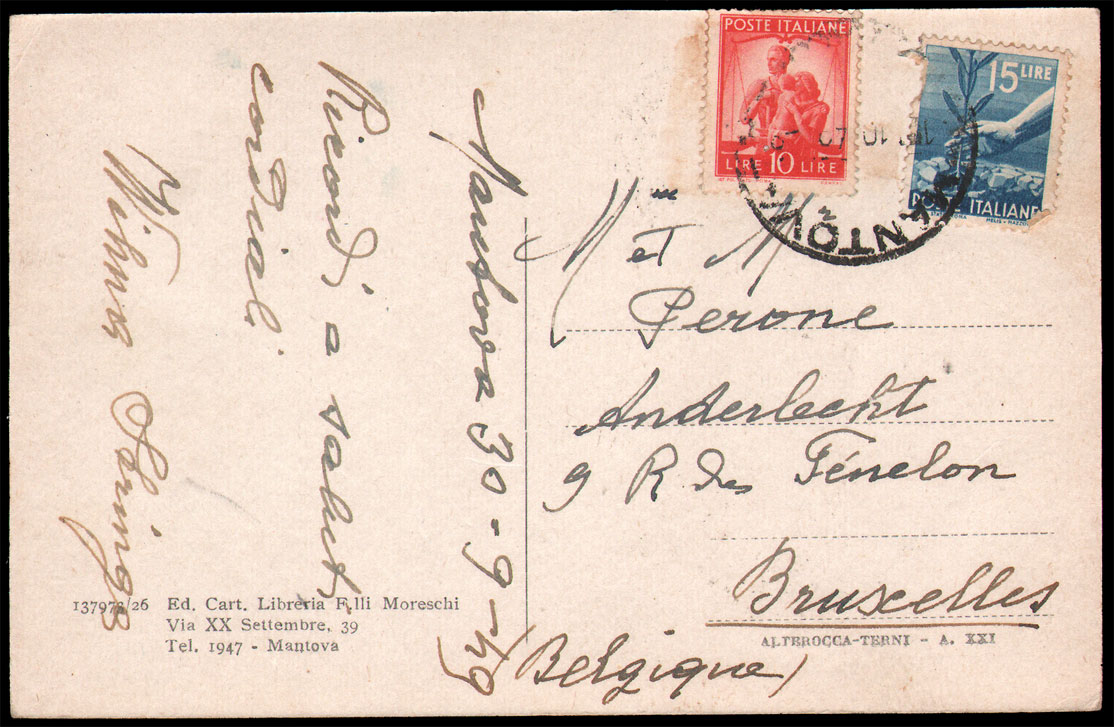 Mantova 30-9-49
Ricordi e saluti
cordiali
Wilma
137973/26 Ed. Cart. Libreria F.lli Moreschi
Via XX Settembre, 39
Tel. 1947 - Mantova
POSTE ITALIANE
LIRE 10 LIRE
15 LIRE
POSTE ITALIANE
MANTOVA
M et M
Perone
Anderlecht
9 R des Fénelon
Bruxelles
(Belgique)
ALTEROCCA-TERNI - A. XXI